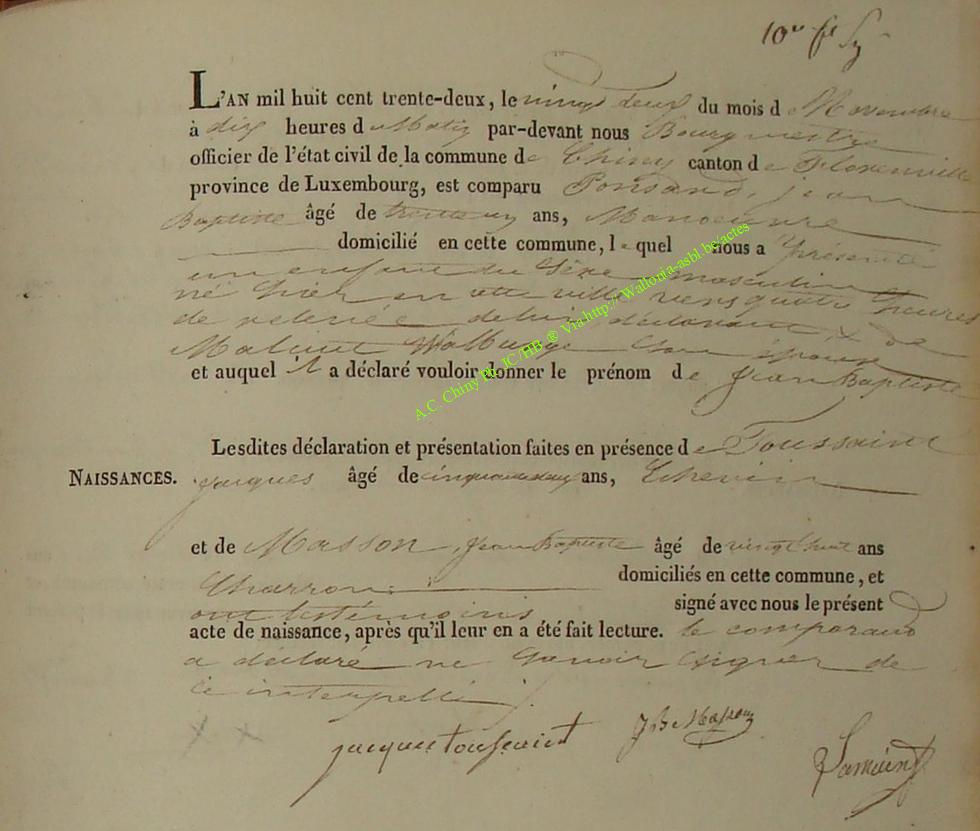 10e
L'AN mil huit cent trente-deux, le vingt deux du mois de Novembre
à dix heures du Matin par-devant nous Bourgmestre
officier de l'état civil de la commune de Chiny canton de Florenville
province de Luxembourg, est comparu Ponsard, jean
Baptiste âgé de trente un ans, Manoeuvre
domicilié en cette commune, lequel nous a présenté
un enfant du Sexe masculin
né hier en cette ville vers quatre heures
de relevée de lui déclarant x de
Walburge son épouse
et auquel il a déclaré vouloir donner le prénom de Jean Baptiste
Lesdites déclaration et présentation faites en présence de Toussaint
NAISSANCES. jacques âgé de ans, Echevin
et de Masson, Jean Baptiste âgé de vingt huit ans
Charron domiciliés en cette commune, et
ont les témoins signé avec nous le présent
acte de naissance, après qu'il leur en a été fait lecture. le comparant
a déclaré ne Savoir signer de
ce interpellé
x x
jacques toussaint JB Masson
A.C. Chiny Ph. JC/HB ® Via http://Wallonia-asbl.be/actes